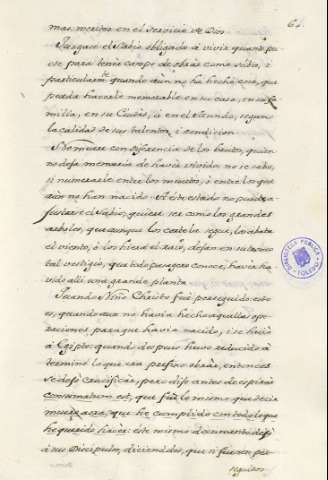 61.
mas meritos en el servicio de Dios.
Juzgase el Sabio obligado à vivir quanto pu-
ese para tener campo de obrar como sabio, i
particularmte quando aun no ha hecho cosa, que
pueda hacerle memorable en su casa, en su fa-
milia, en su Ciudad, ò en el Mundo, segun
la calidad de sus talentos, i condicion.
No muere con diferencia de los brutos, quien
no deja memoria de haver vivido: no se sabe,
si numerarle entre los muertos, ò entre los que
aun no han nacido. A este estado no puede a-
justarse el Sabio, quiere ser como los grandes
arboles, que aunque los corte la segur, los abata
el viento, ò los hiera el raio, dejan en su tronco
tal vestigio, que todo pasagero conoce, havia ha-
vido alli una grande planta.
Quando Niño Christo fuè perseguido: esto
es, quando aun no havia hecho aquellas ope-
raciones para que havia nacido, i se huiò
à Egipto: quando despues huvo reducido à
termino lo que era preciso obrar, entonces
se dejò crucificar, pero dijo antes de espirar
consumatum est, que fuè lo mismo que decir
muera aora, que he cumplido con todo lo que
he querido hacer: este mismo documento dejò
à sus Discipulos, diciendoles, que si fuesen per-
seguidos
BIBLIOTECA PUBLICA
TOLEDO